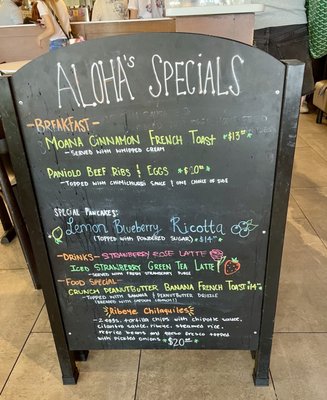 ALOHA's SPECIALS
-BREAKFAST-
MOANA CINNAMON FRENCH TOAST
- SERVED WITH WHIPPED CREAM
PANIOLO BEEF RIBS & EGGS
- TOPPED WITH CHIMICHURRI SAUCE & ONE CHOICE OF SIDE
SPECIAL PANCAKES:
LEMON BLUEBERRY RICOTTA
(TOPPED WITH POWDERED SUGAR)
-DRINKS- STRAWBERRY ROSE LATTE
ICED STRAWBERRY GREEN TEA LATTE
-FOOD SPECIAL-
CRUNCH PEANUTBUTTER BANANA FRENCH TOAST
- TOPPED WITH BANANA & PEANUTBUTTER DRIZZLE
(BREADED WITH CAPTION CRUNCH)
Ribeye Chilaquiles
- 2 eggs, tortilla chips with chipotle sauce,
cilantro sauce, ribeye, steamed rice,
refried beans and queso fresco topped
with pickled onions $20